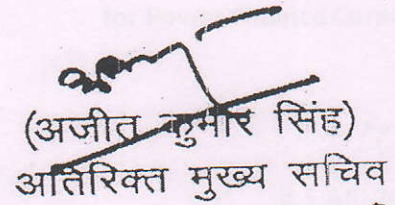 (अजीत कुमार सिंह)
अतिरिक्त मुख्य सचिव